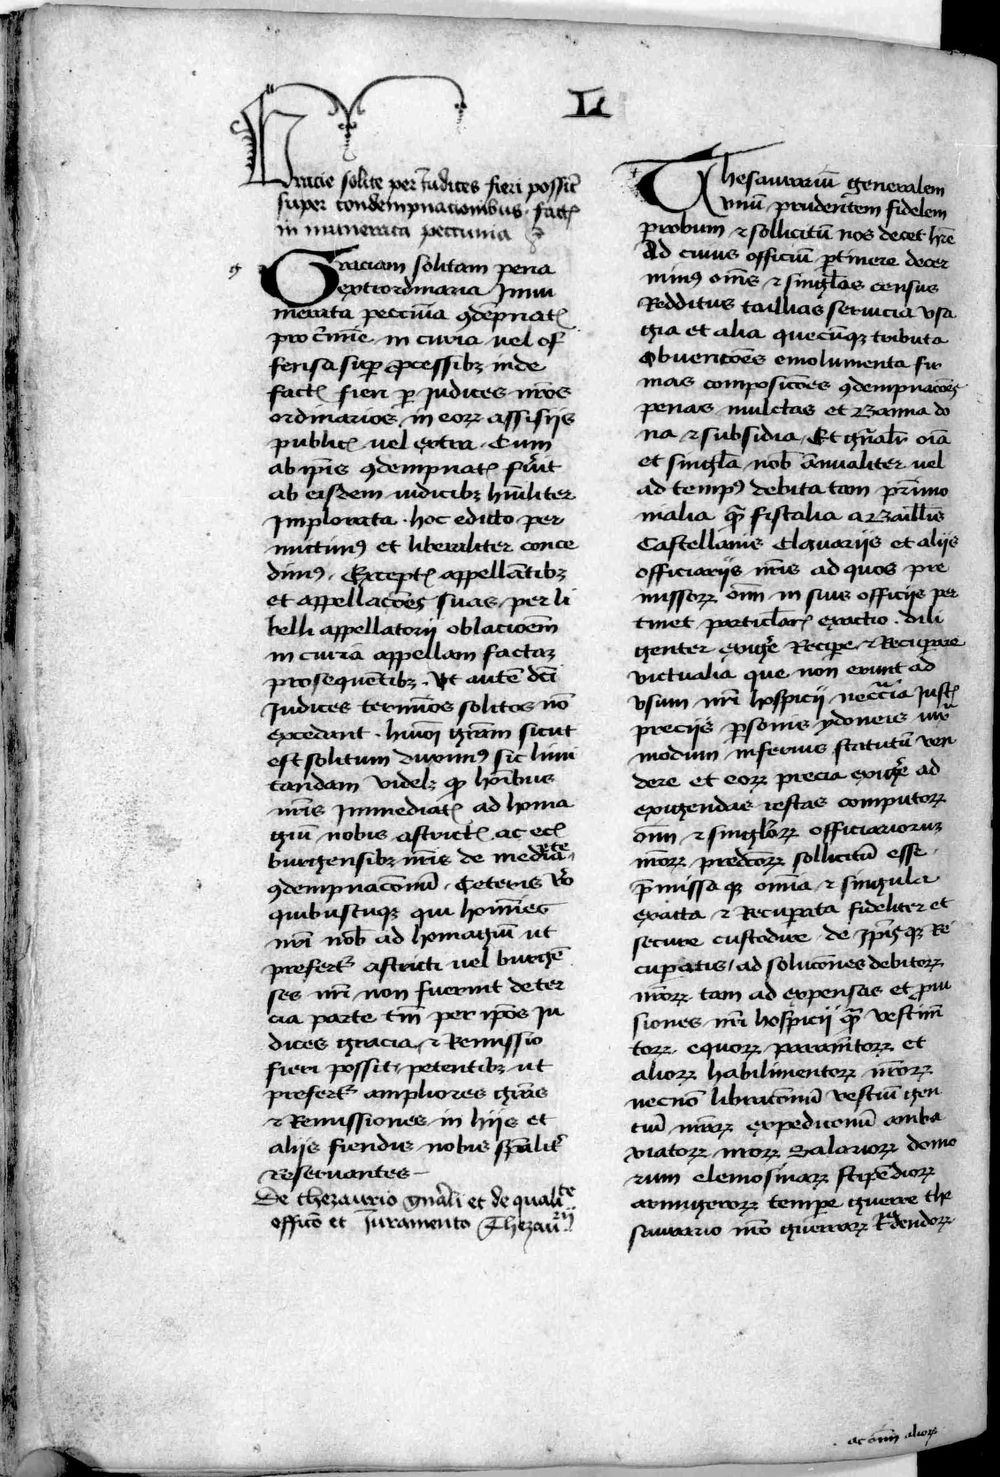 L
Gracie solite per Iudices fieri possint
super condempnacionibus fact
in numerata peccunia
Graciam solitam pena
extraordinaria Innu
merata peccunia 9depnat
pro crimine in curia vel of
fensa sup processibz inde
fact fieri p Judices nros
ordinarios in eorz assisiis
public vel extra . Cum
ab ipis 9dempnat fuerit
ab eisdem iudicibz humiliter
Implorata . hoc edicto per
mittim9 et liberaliter conce
dim9 . Except appellatibz
et appellacões suas per li
belli appellatorii oblacioem
in curia appellam factaz
prosequentibz . Vt autem dci
Judices terminos solitos no
excedant . huioi gram sicut
est solitum duxim9 sic limi
tandam videlz q hoibus
nris Immediat ad homa
giu nobis astrict ac ec
burgensibz nris de medietate
9dempnacõnu . Ceteris vo
quibuscuqz qui homines
nri nob ad homagiu ut
prefert astricti vel burgen
ses nri non fuerint de ter
cia parte tm per ipos Ju
dices gracia et Remissio
fieri possit petentibz ut
prefert ampliores gras
et Remissiones in hiis et
aliis fiendis nobis spalit
reservantes
De thezaurio gnali et de qualite
officio et Juramento Thezaurii
Thesaurariu generalem
vnu prudentem fidelem
probum et sollicitu nos decet hre
Ad cuius officiu ptinere decer
nim9 oms et singlos census
Redditus taillias seruicia vsa
gia et alia quecuqz tributa
Obuencões emolumenta fir
mas composicões 9dempnacões
penas mulctas et Banna do
na et subsidia Et gnalr oia
et singla nob annualiter vel
ad temp9 debita tam patrimo
nialia q fiscalia a Baillis
Castellanis Clauariis et aliis
officiariis nris ad quos pre
missorz oim in suis officiis per
tinet particlar exactio . dili
genter exige Recipe et Recuperare
victualia que non erunt ad
vsum nri hospicii neccria Just
preciis psonis ydoneis iux
modum inferius statutu ven
dere et eorz precia exige ad
exigendas restas computorz
oim et singlorz officiariorz
nrorz predcorz sollicitu esse .
pmissa qz omia et singula
exacta et Recuperata fideliter et
secure custodire de ipisqz Re
cuperatis ad solucões debitorz
nrorz tam ad expensas et proui
siones nri hospicii q vestim
torz equorz paramtorz et
aliorz habilimentorz nrorz
necno libracõnu vestiu gen
tiu nrarz expedicionu amba
xiatorz nrorz Salariorz domo
rum elemosinarz stipendiorz
armigerorz tempe guerre the
saurario nro guerrarz tradendorz
ac oim aliorz